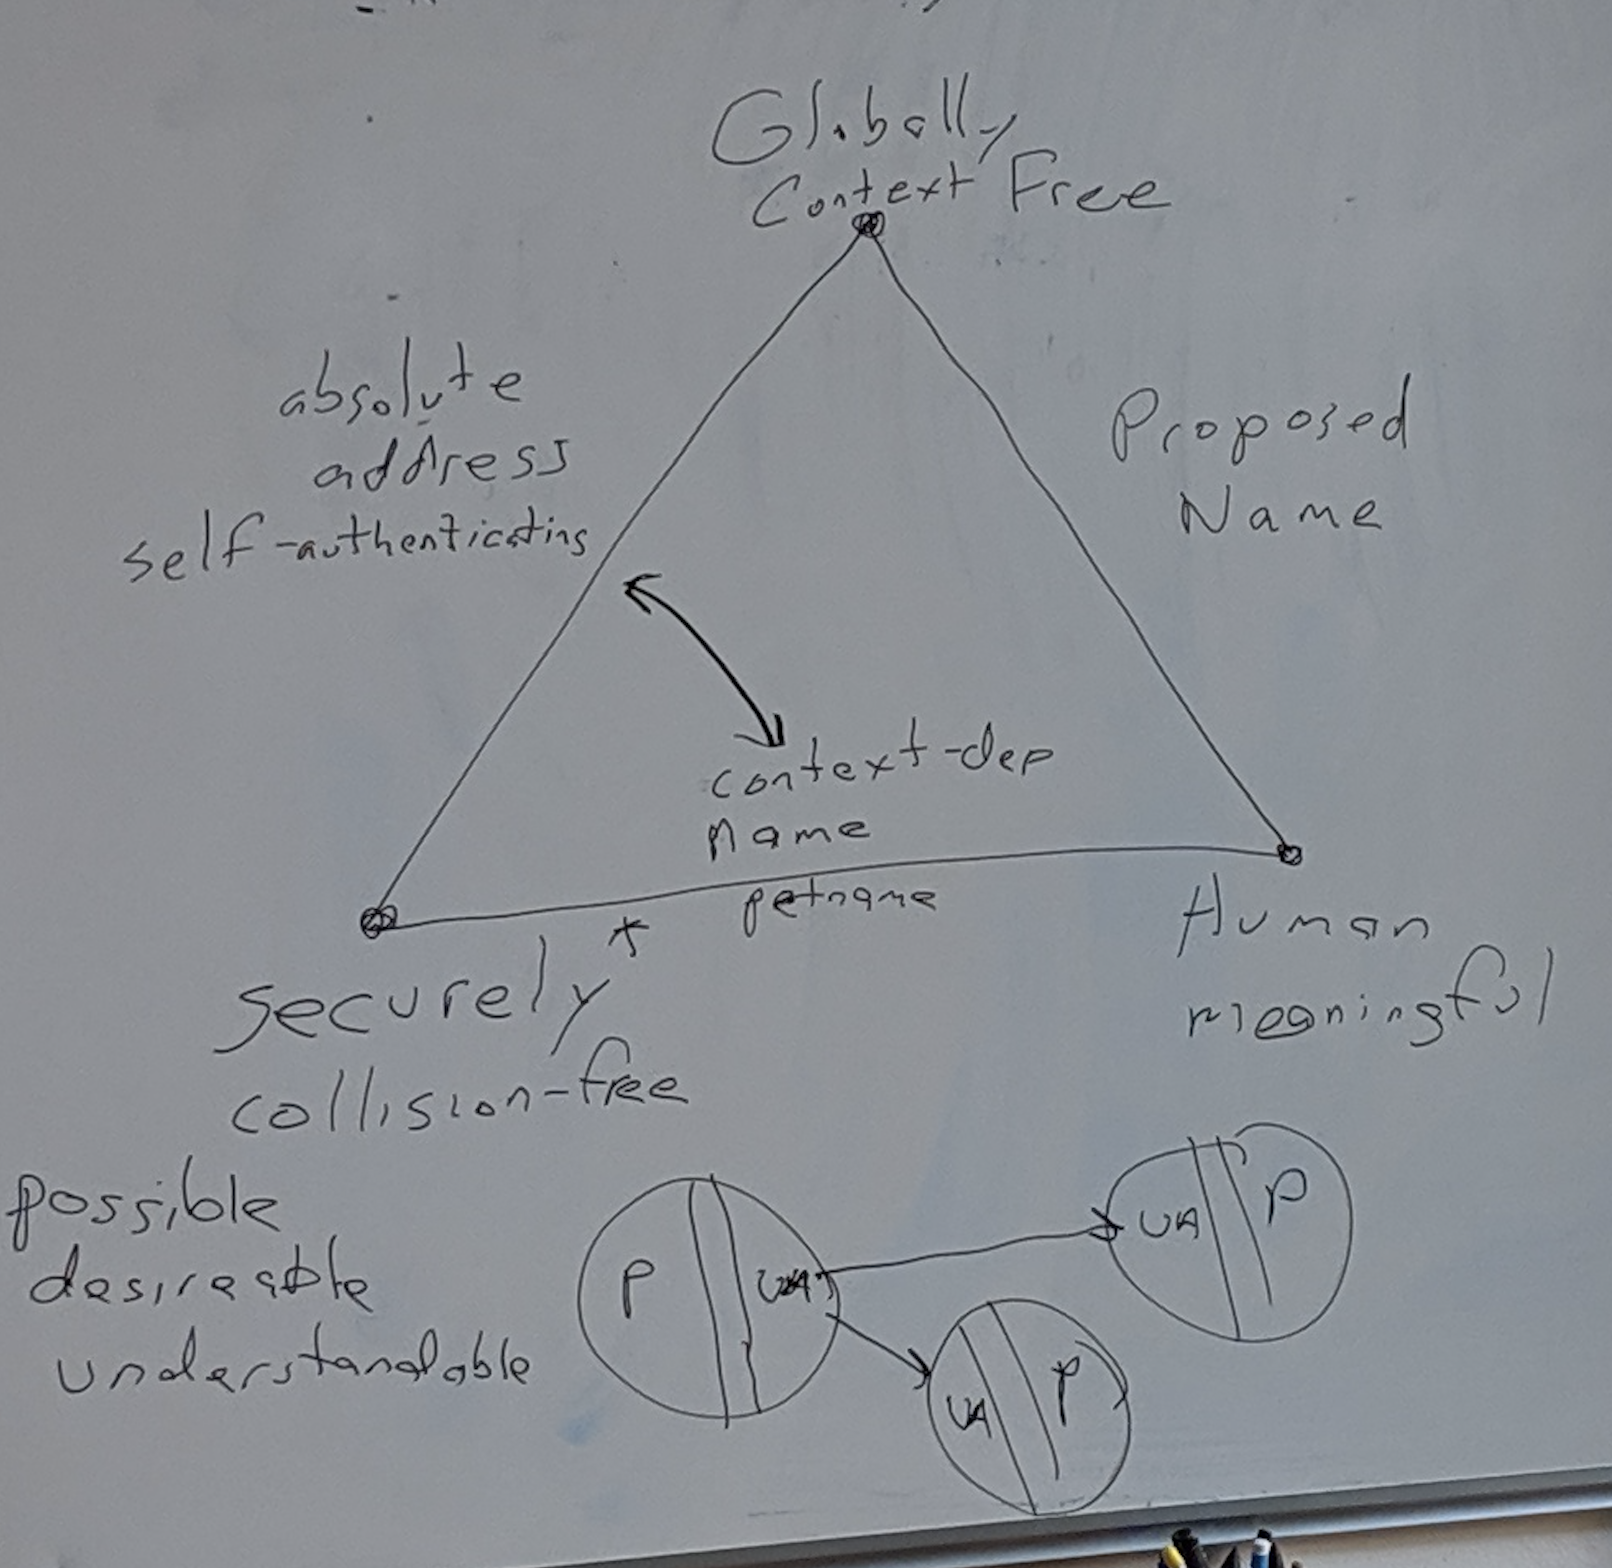 Globally
Context Free
absolute
address
self-authenticating
Proposed
Name
context-dep
name
petname
*
securely
collision-free
Human
meaningful
possible
desireable
understandable
P UA
UA P
UA P